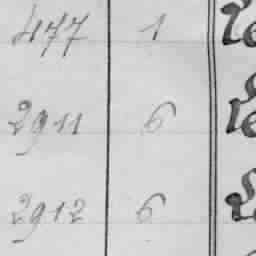 477 1
2911 6
2912 6